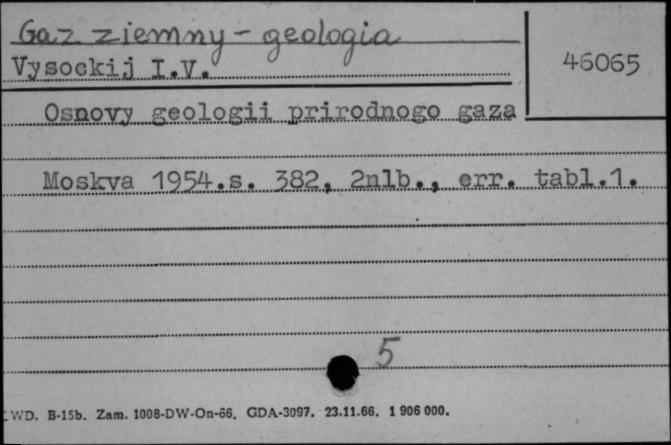 Gaz ziemny - geologia
Vysockij I.V.
46065
Osnovy geologii prirodnogo gaza
Moskva 1954.s. 382, 2nlb., err. tabl.1.
5
WD. B-15b. Zam. 1008-DW-On-66. GDA-3097. 23.11.66. 1 906 000.